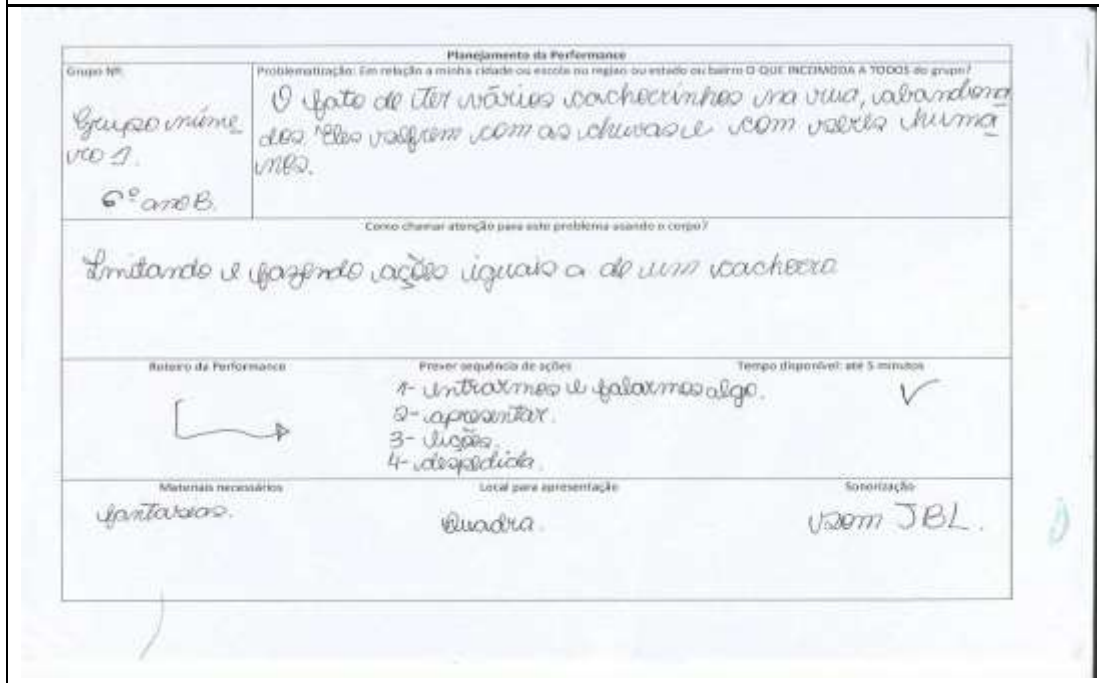 Planejamento da Performance
Grupo Nº:
Grupo núme
ro 1.
6º ano B.
Problematização: Em relação a minha cidade ou escola ou região ou estado ou bairro O QUE INCOMODA A TODOS do grupo?
O fato de ter vários cachorrinhos na rua, abandona
dos. Eles sofrem com as chuvas e com seres huma
nos.
Como chamar atenção para este problema usando o corpo?
Imitando e fazendo ações iguais a de um cachorro
Roteiro da Performance
Prever sequência de ações
Tempo disponível: até 5 minutos
1- entrarmos e falarmos algo.
2- apresentar.
3- lições.
4- despedida.
Materiais necessários
Local para apresentação
Sonorização
fantasias.
Quadra.
som JBL.